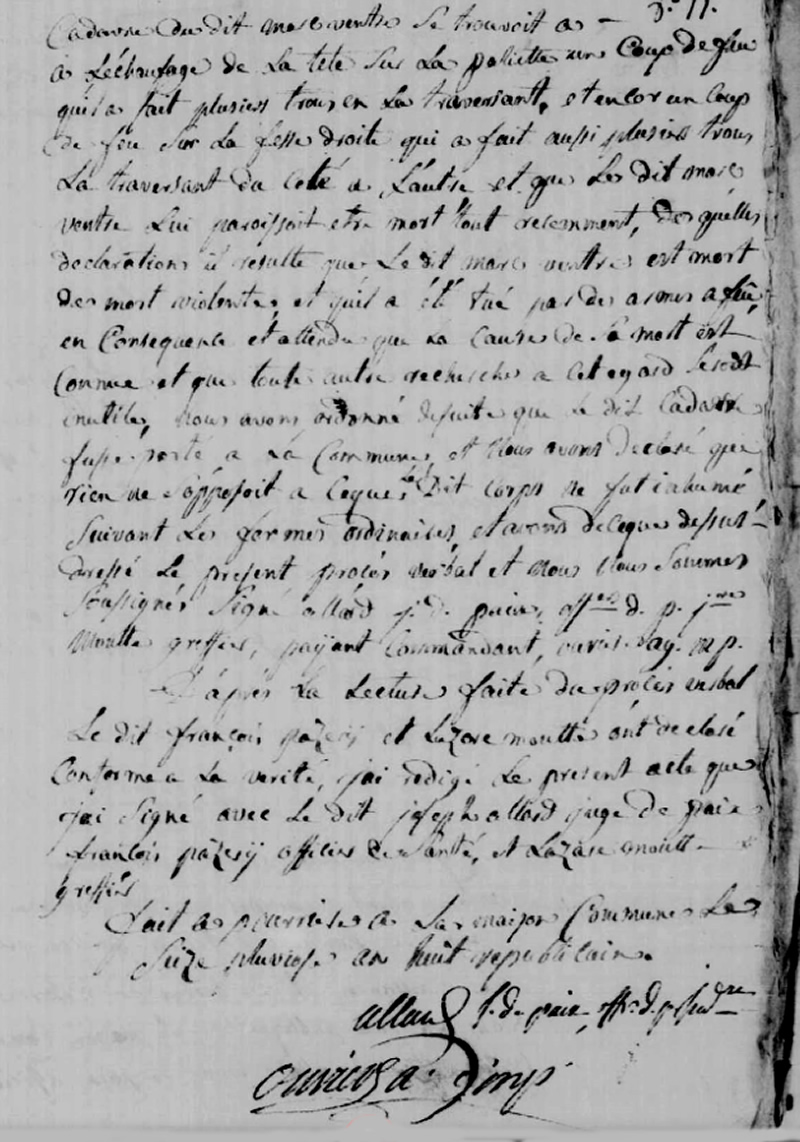 Cadavre du dit marc ventre se trouvoit a
a Léchrufage de la tete sur la poliette un Coup de feu
quil a fait plusieurs trous en La traversant, et encor un Coup
de feu sur La fesse droite qui a fait aussi plusieurs trous
La traversant du coté a L'autre et que Le dit marc
ventre Lui paroissoit etre mort tout recemment, des quelles
declarations il resulte que Le dit marc ventre est mort
de mort violente, et quil a été tué par des armes a feu,
en Consequence et attendu que La Cause de sa mort est
Connue et que toute autre recherche a cet egard seroit
inutile, Nous avons ordonné desuite que Le dit Cadavre
fusse porté a La Commune, et Nous avons declaré que
rien ne s'oppossoit a ceque Le Dit corps ne fut inhumé
suivant Les formes ordinaires, et avons deceque dessus
dressé Le present procés verbal et Nous Nous sommes
soussignés signé allard j. d. paix, offer d. p. jres
Moutte greffier, payant Commandant, ag. mp.
D'aprés La Lecture faite du procés verbal
Le dit françois pazery et Lazare moutte ont declaré
Conforme a La verité, jai redigé Le present acte que
jai signé avec Le dit joseph allard juge de paix
françois pazery officier de santé, et Lazare moutte
greffier
Fait a pourrieres a La maison Commune Le
seize pluviose an huit republicain.
allard j. de paix, off. d. p. judre